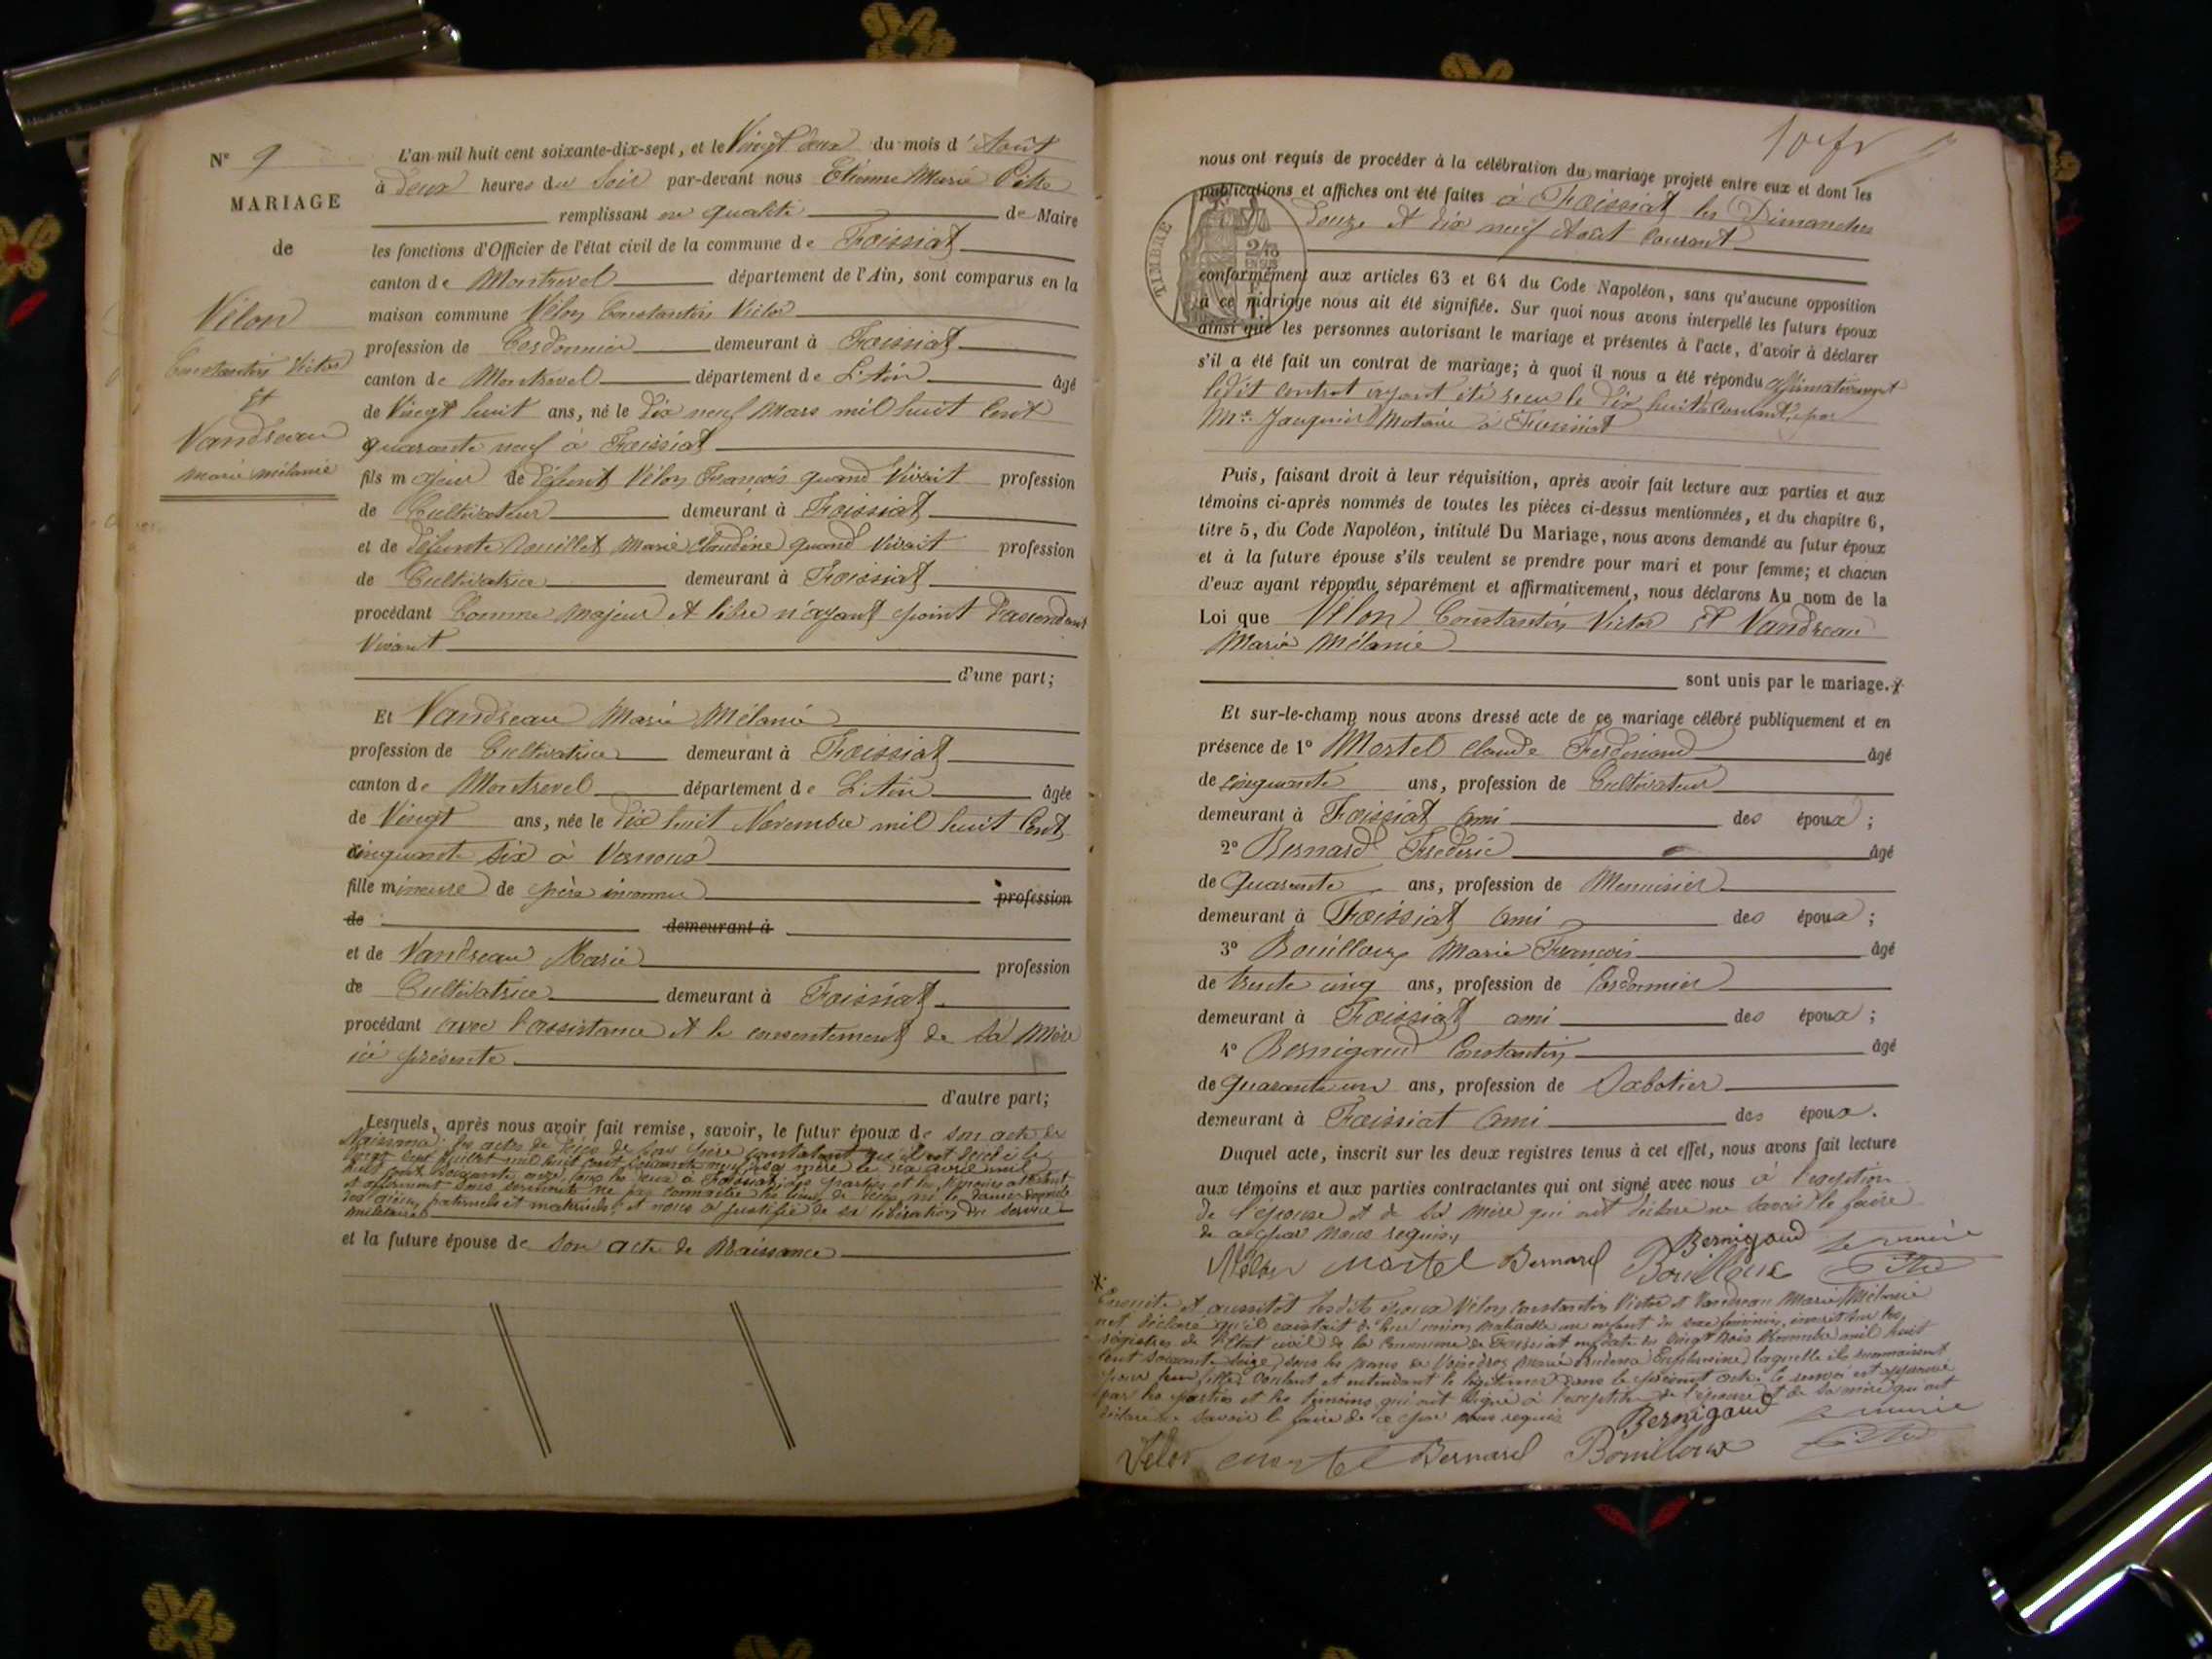 N° 9
MARIAGE
de
Vélon
Constantin Victor
Et
Vandreau
marie mélanie
L'an mil huit cent soixante-dix-sept, et le Vingt deux du mois d'Août
à deux heures du Soir par-devant nous Etienne Marie Pitre
remplissant en qualité de Maire
les fonctions d'Officier de l'état civil de la commune de Foissiat
canton de Montrevel département de l'Ain, sont comparus en la
maison commune Vélon Constantin Victor
profession de Cordonnier demeurant à Foissiat
canton de Montrevel département de L'Ain âgé
de Vingt huit ans, né le dix neuf Mars mil huit Cent
quarante neuf à Foissiat
fils majeur de défunt Vélon François quand Vivait profession
de Cultivateur demeurant à Foissiat
et de défunte Marie Claudine quand Vivait profession
de Cultivatrice demeurant à Foissiat
procédant Comme Majeur et libre n'ayant point d'ascendant
Vivant
d'une part;
Et Vandreau Marie Mélanie
profession de Cultivatrice demeurant à Foissiat
canton de Montrevel département de L'Ain âgée
de Vingt ans, née le dix huit Novembre mil huit Cent
cinquante six à Vernoux
fille mineure de père inconnu profession
de demeurant à
et de Vandreau Marie profession
de Cultivatrice demeurant à Foissiat
procédant avec l'assistance et le consentement de sa Mère
ici présente
d'autre part;
Lesquels, après nous avoir fait remise, savoir, le futur époux de son acte de
Naissance; les actes de décès de son père constatant qu'il est décédé le
Vingt sept Juillet mil huit cent soixante neuf, sa mère le avril mil
huit cent soixante onze, tous les deux à Foissiat; les parties et les témoins attestant
et affirmant sous serment ne pas connaître le lieu de décès ni le dernier domicile
des aïeux paternels et maternels; et nous a justifié de sa libération du service
militaire
et la future épouse de son acte de Naissance
10 fr
nous ont requis de procéder à la célébration du mariage projeté entre eux et dont les
publications et affiches ont été faites à Foissiat les Dimanches
douze et dix neuf Août courant
TIMBRE
2/10
EN SUS
conformément aux articles 63 et 64 du Code Napoléon, sans qu'aucune opposition
à ce mariage nous ait été signifiée. Sur quoi nous avons interpellé les futurs époux
ainsi que les personnes autorisant le mariage et présentes à l'acte, d'avoir à déclarer
s'il a été fait un contrat de mariage; à quoi il nous a été répondu affirmativement
ledit contrat ayant été reçu le dix huit Courant, par
Me Notaire à Foissiat
Puis, faisant droit à leur réquisition, après avoir fait lecture aux parties et aux
témoins ci-après nommés de toutes les pièces ci-dessus mentionnées, et du chapitre 6,
titre 5, du Code Napoléon, intitulé Du Mariage, nous avons demandé au futur époux
et à la future épouse s'ils veulent se prendre pour mari et pour femme; et chacun
d'eux ayant répondu séparément et affirmativement, nous déclarons Au nom de la
Loi que Vélon Constantin Victor Et Vandreau
Marie Mélanie
sont unis par le mariage. X
Et sur-le-champ nous avons dressé acte de ce mariage célébré publiquement et en
présence de 1° Mortel Claude Ferdinand âgé
de cinquante ans, profession de Cultivateur
demeurant à Foissiat ami des époux;
2° Bernard Frédéric âgé
de Quarante ans, profession de Menuisier
demeurant à Foissiat ami des époux;
3° Bouilloux Marie François âgé
de trente cinq ans, profession de Cordonnier
demeurant à Foissiat ami des époux;
4° Bernigaud Constantin âgé
de quarante un ans, profession de Sabotier
demeurant à Foissiat ami des époux.
Duquel acte, inscrit sur les deux registres tenus à cet effet, nous avons fait lecture
aux témoins et aux parties contractantes qui ont signé avec nous à l'exception
de l'épouse et de sa mère qui ont déclaré ne savoir le faire
de ce par nous requis
Vélon Mortel Bernard Bernigaud Bouilloux le maire Pitre
X Ensuite et aussitôt lesdits époux Vélon Constantin Victor et Vandreau Marie Mélanie
ont déclaré qu'il existait de leur union naturelle un enfant du sexe féminin, inscrit sur les
registres de l'Etat civil de la Commune de Foissiat en date du Vingt trois Novembre mil huit
cent soixante seize, sous les noms de Marie Euphrasine laquelle ils reconnaissent
pour leur fille voulant et entendant la légitimer dans le présent acte. le renvoi est approuvé
par les parties et les témoins qui ont signé à l'exception de l'épouse et de sa mère qui ont
déclaré ne savoir le faire de ce par nous requis
Vélon Mortel Bernard Bernigaud Bouilloux le maire Pitre